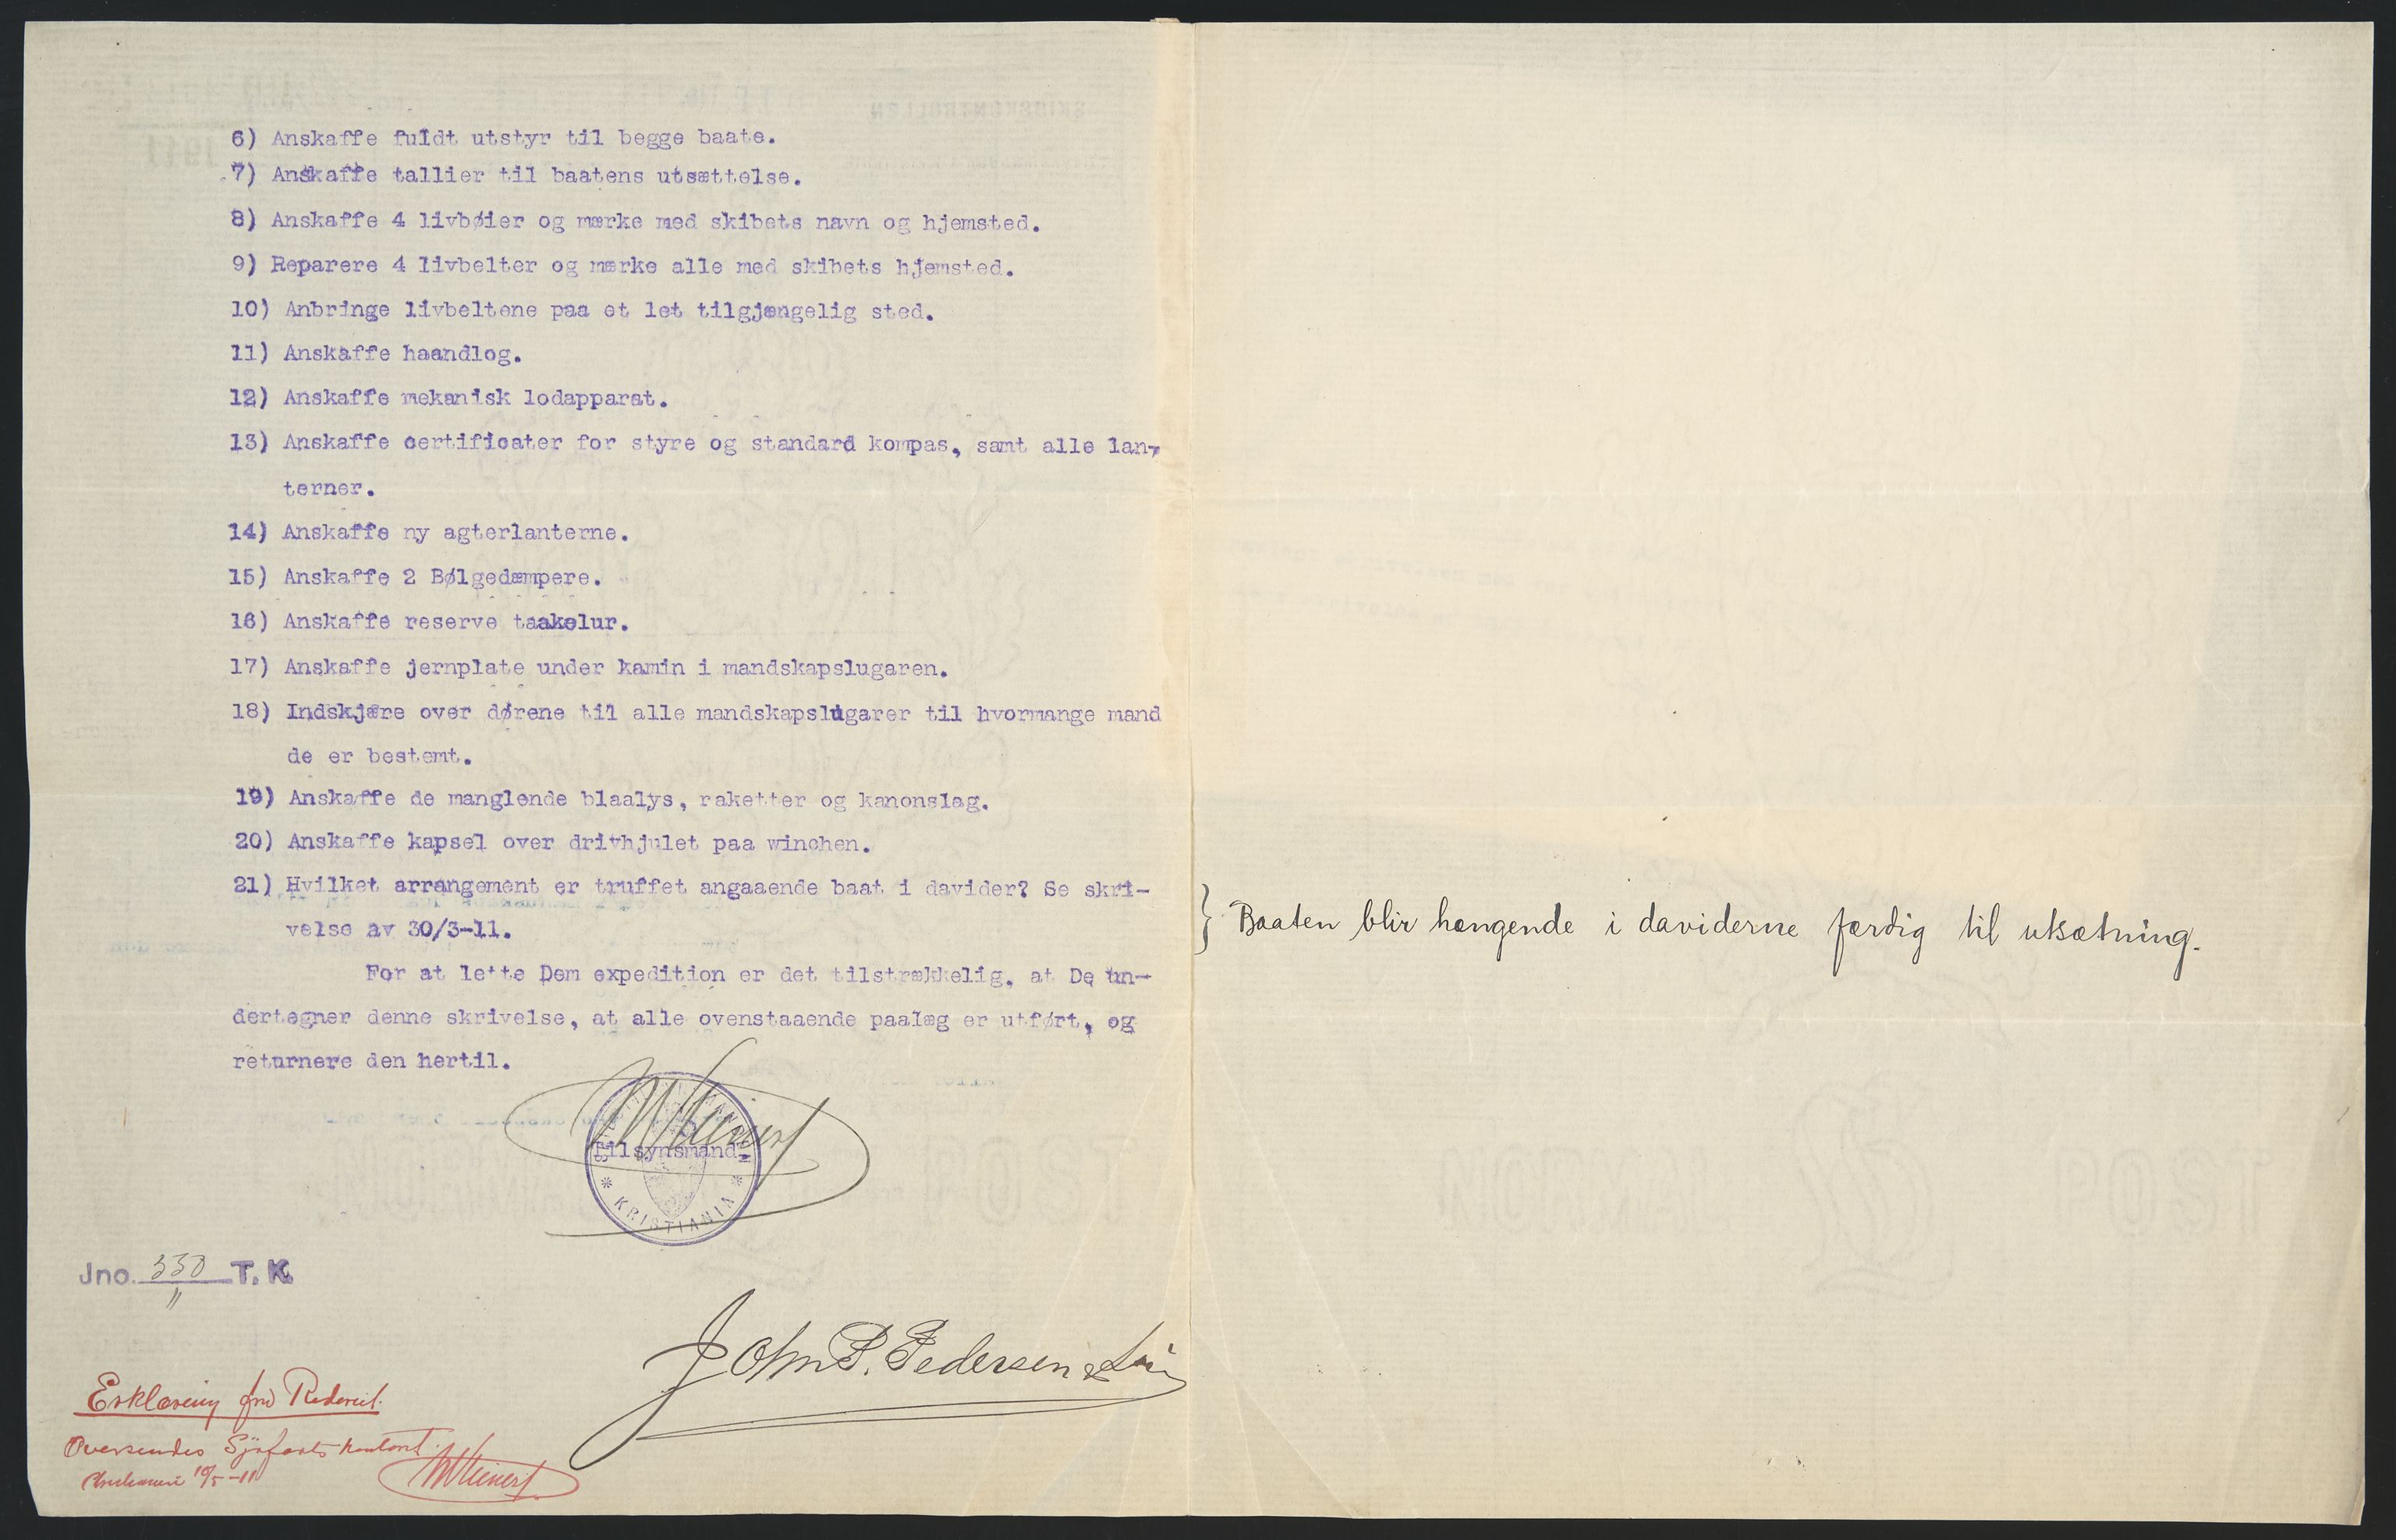 6) Anskaffe fuldt utstyr til begge baate.
7) Anskaffe tallier til baatens utsættelse.
8) Anskaffe 4 livbøier og mærke med skibets navn og hjemsted.
9) Reparere 4 livbelter og mærke alle med skibets hjemsted.
10) Anbringe livbeltene paa et let tilgjængelig sted.
11) Anskaffe haandlog.
12) Anskaffe mekanisk lodapparat.
13) Anskaffe certificater for styre og standard kompas, samt alle lan-
terner.
14) Anskaffe ny agterlanterne.
15) Anskaffe 2 Bølgedæmpere.
16) Anskaffe reserve taakelur.
17) Anskaffe jernplate under kamin i mandskapslugaren.
18) Indskjære over dørene til alle mandskapslugarer til hvormange mand
de er bestemt.
19) Anskaffe de manglende blaalys, raketter og kanonslag.
20) Anskaffe kapsel over drivhjulet paa winchen.
21) Hvilket arrangement er truffet angaaende baat i davider? Se skri-
velse av 30/3-11.
} Baaten blir hængende i daviderne færdig til utsætning.
For at lette Dem expedition er det tilstrækkelig, at De un-
dertegner denne skrivelse, at alle ovenstaaende paalæg er utført, og
returnere den hertil.
Tilsynsmand
KRISTIANIA
Jno. 330 T. K.
11
John P. Pedersen & Søn
Erklæring fra Rederiet.
Oversendes Sjöfartskontoret.
10/5-11